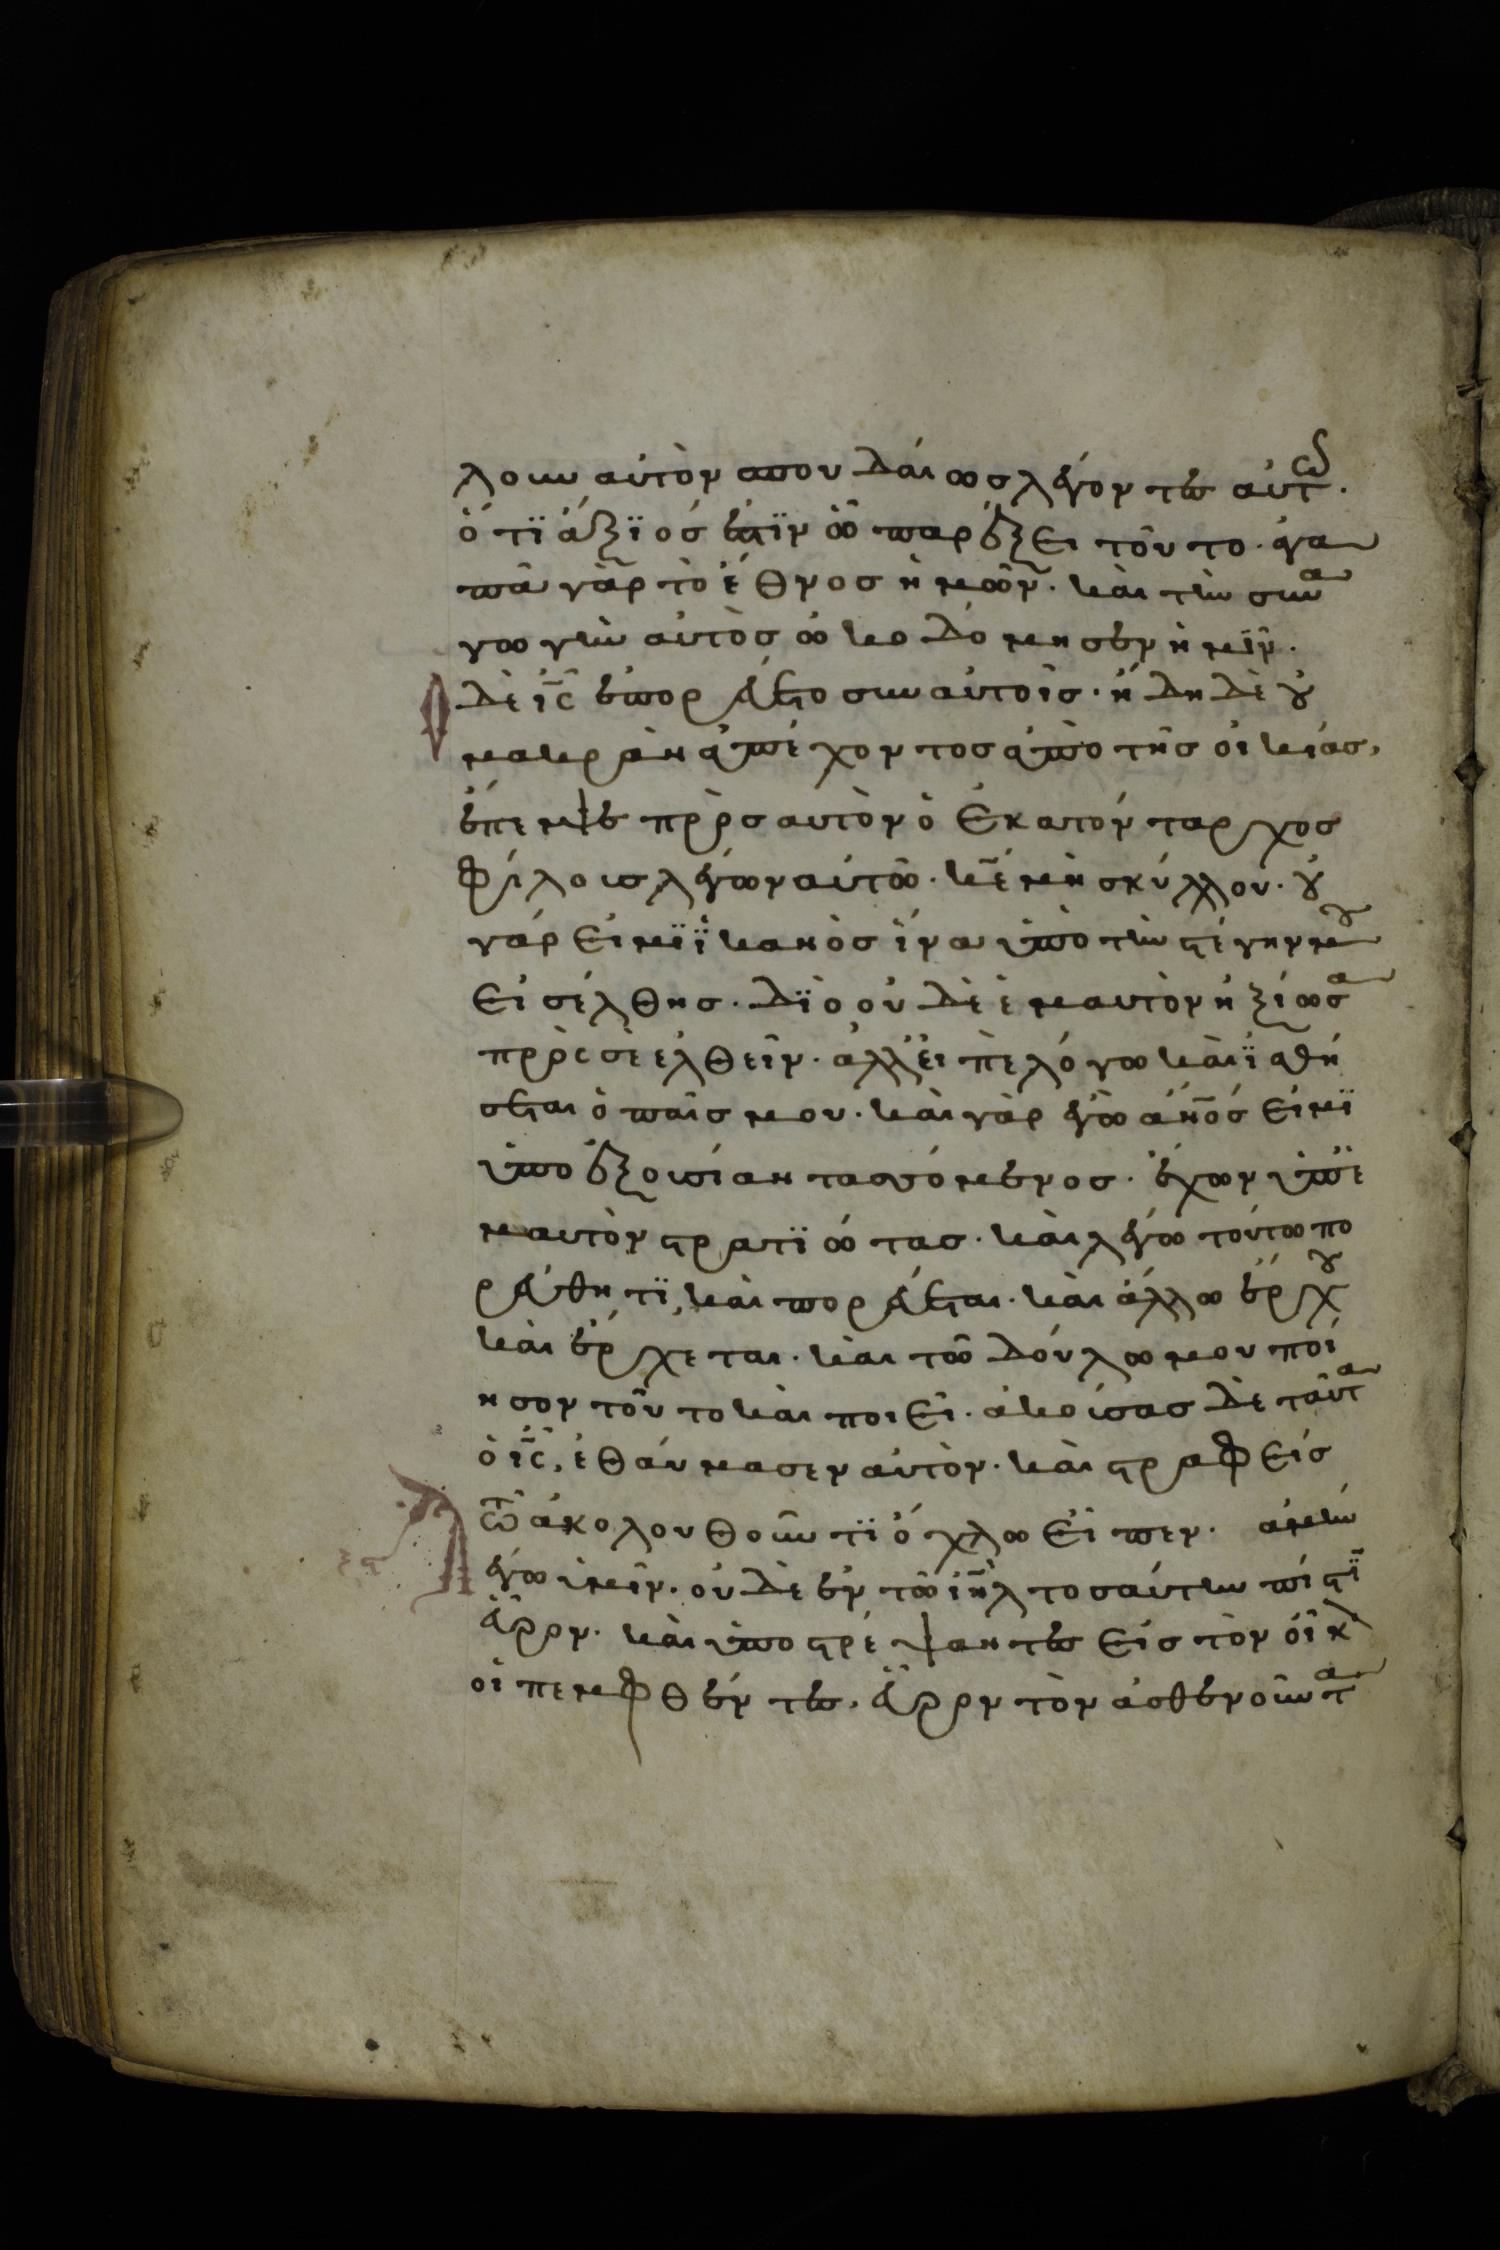 λουν αὐτὸν σπουδαίως λέγοντες αὐτῶ.
ὅτϊ ἄξϊός ἐστϊν ὧ παρέξει τοῦτο· ἀγα
πᾶ γὰρ τὸ ἔθνος ἡμῶν· καὶ τὴν συνα
γωγὴν αὐτὸς ὠκοδόμησεν ἡμῖν·
Ὁ δὲ ις ἐπορεύετο σὺν αὐτοῖς· ἤδη δὲ οὐ
μακρὰν ἀπέχοντος ἀπὸ τῆς οἰκίας,
ἔπεμψε πρὸς αὐτὸν ὁ ἑκατόνταρχος
φίλους λέγων αὐτῶ· κε μὴ σκύλλου· οὐ
γάρ εἰμϊ ϊκανὸς ἵνα ὑπὸ τὴν στέγην μου
εἰσέλθης· δϊὸ οὐδὲ ἐμαυτὸν ἠξίωσα
πρὸς σὲ ἐλθεῖν· ἀλλ εἰπὲ λόγω καὶ ϊαθή
σεται ὁ παῖς μου· καὶ γὰρ ἐγὼ ανος εἰμϊ
ὑπὸ ἐξουσίαν τασσόμενος· ἔχων ὑπ ἐ
μαυτὸν στρατϊώτας· καὶ λέγω τούτω πο
ρεύθητϊ, καὶ πορεύεται· καὶ ἄλλω ἔρχου
καὶ ἔρχεται· καὶ τῶ δούλω μου ποί
ησον τοῦτο καὶ ποιεῖ· ἀκούσας δὲ ταῦτα
ὁ ις, ἐθαύμασεν αὐτὸν· καὶ στραφεὶς
τῶ ἀκολουθοῦντϊ ὄχλω εἶπεν· ἀμὴν
λέγω ὑμῖν· οὐδὲ ἐν τῶ ιηλ τοσαύτην πίστϊν
εὗρον· καὶ ὑποστρέψαντες εἰς τὸν οἶκον
οἱ πεμφθέντες, εὗρον τὸν ἀσθενοῦντα